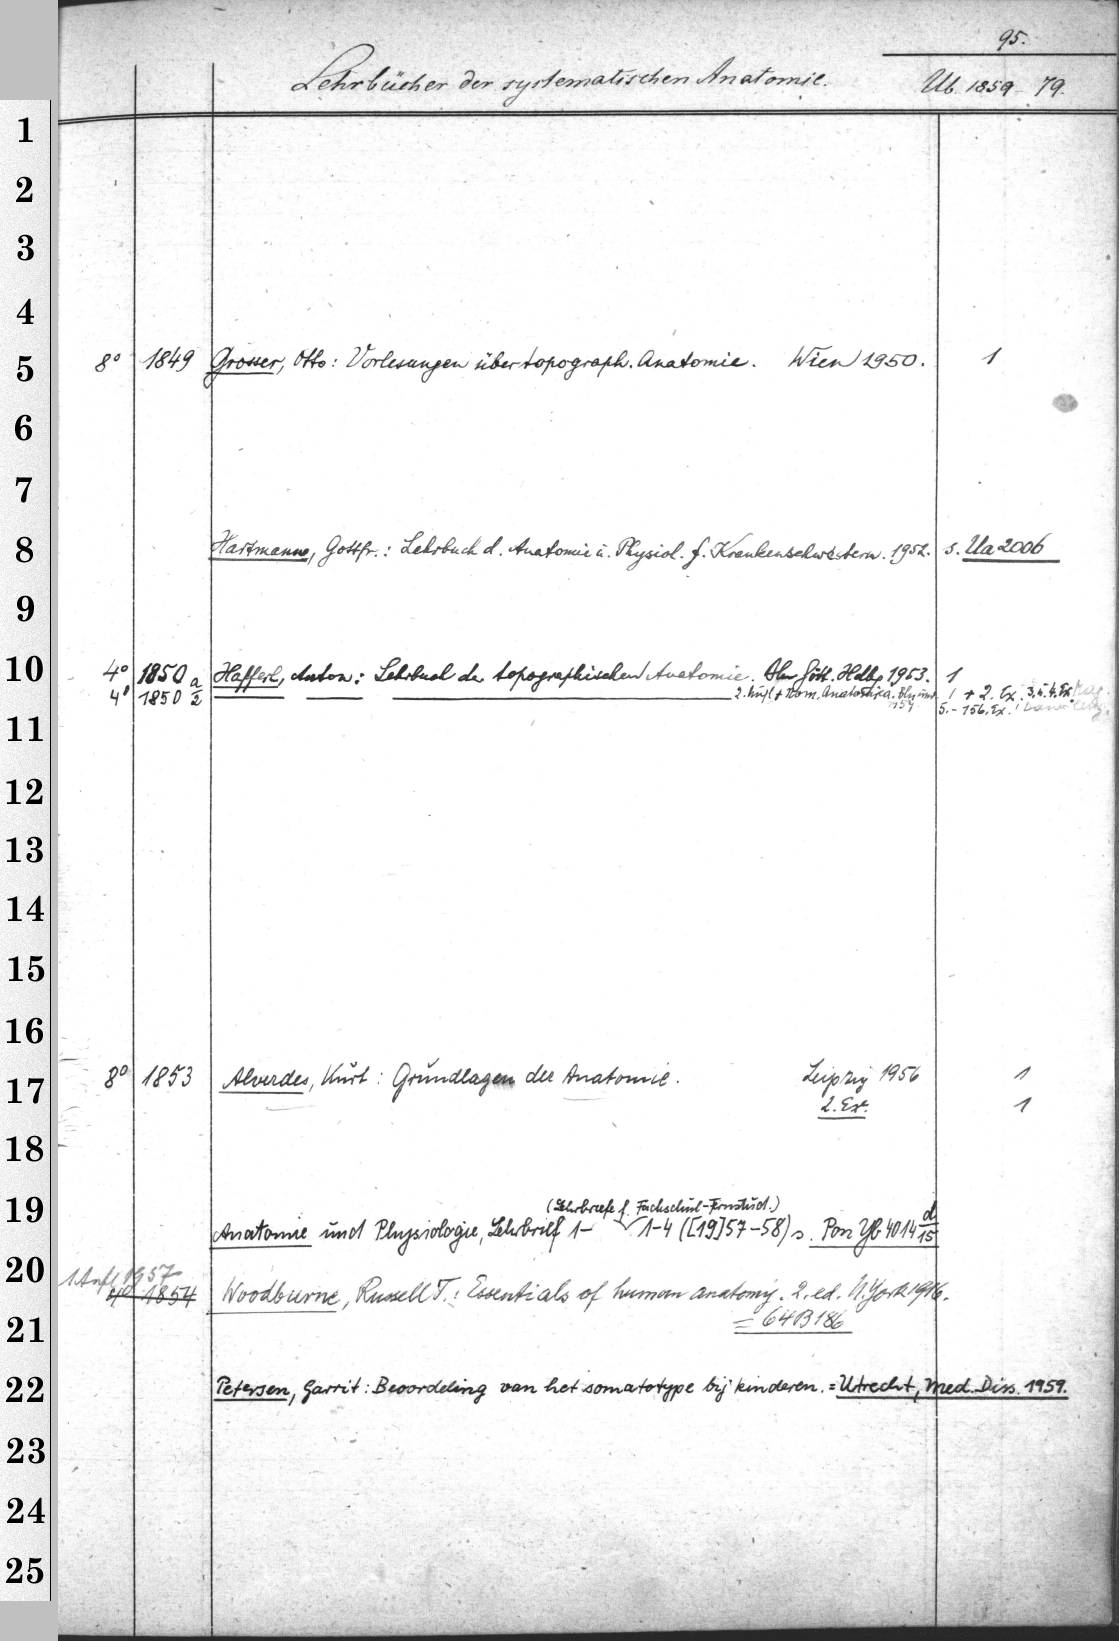 95.
Lehrbücher der systematischen Anatomie. Ub. 1859 - 79.
1
2
3
4
5 8° 1849 Grosser, Otto: Vorlesungen über topograph. Anatomie. Wien 1950. 1
6
7
8 Hartmann, Gottfr.: Lehrbuch d. Anatomie u. Physiol. f. Krankenschwestern. 1952. s. Ua 2006
9
10 4° 1850 Hafferl, Anton: Lehrbuch der topographischen Anatomie. Bln Gött. Hdlbg 1953. 1
4° 1850 a/2 2. Aufl + Nom. Anatomica. 1 + 2. Ex. 3. u. 4. Ex.
5. - 156. Ex.
11
12
13
14
15
16
17 8° 1853 Alverdes, Kurt: Grundlagen der Anatomie. Leipzig 1956 1
2. Ex. 1
18
(Lehrbriefe f. Fachschul-Fernstud.)
19 Anatomie und Physiologie, Lehrbrief 1- 1-4 ([19]57-58) s. Pon Yb 4014 d/15
20 1. Aufl 1957
8° 1854 Woodburne, Russell T.: Essentials of human anatomy. 2. ed. N. York
= 64 B 186
21
22 Petersen, Garrit: Beoordeling van het somatotype bij kinderen. = Utrecht, Med. Diss. 1959.
23
24
25